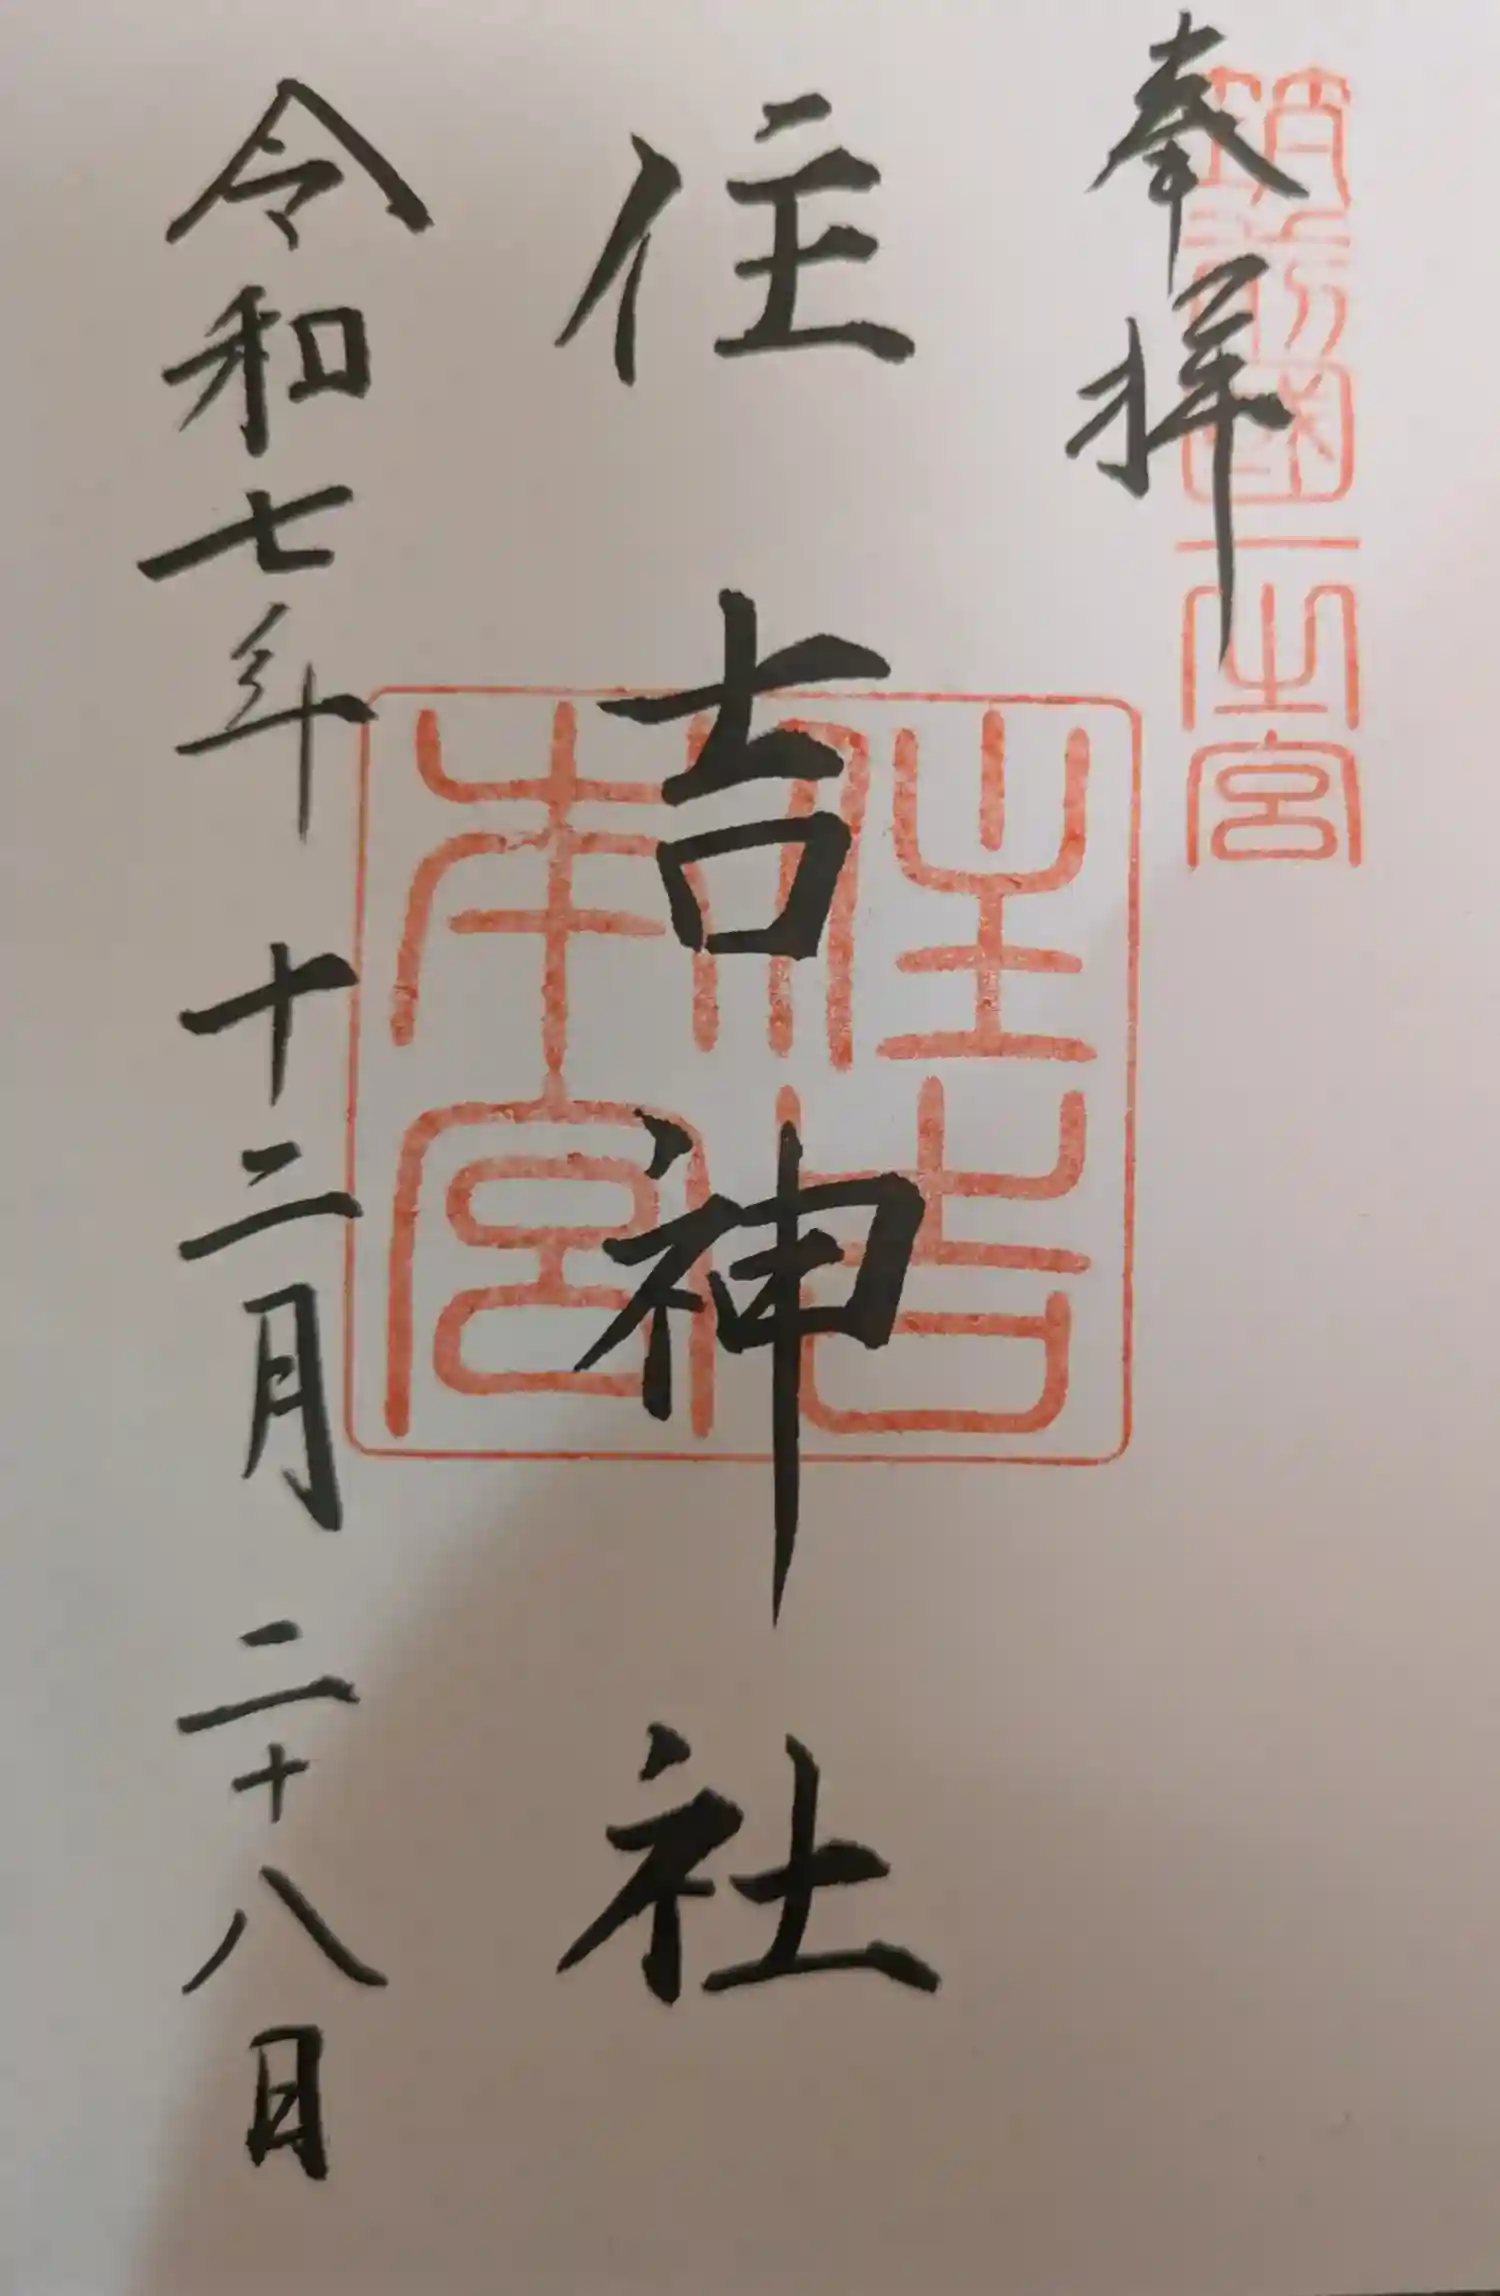 奉拝
筑前國一之宮
住吉神社
住吉
本宮
令和七年十二月二十八日